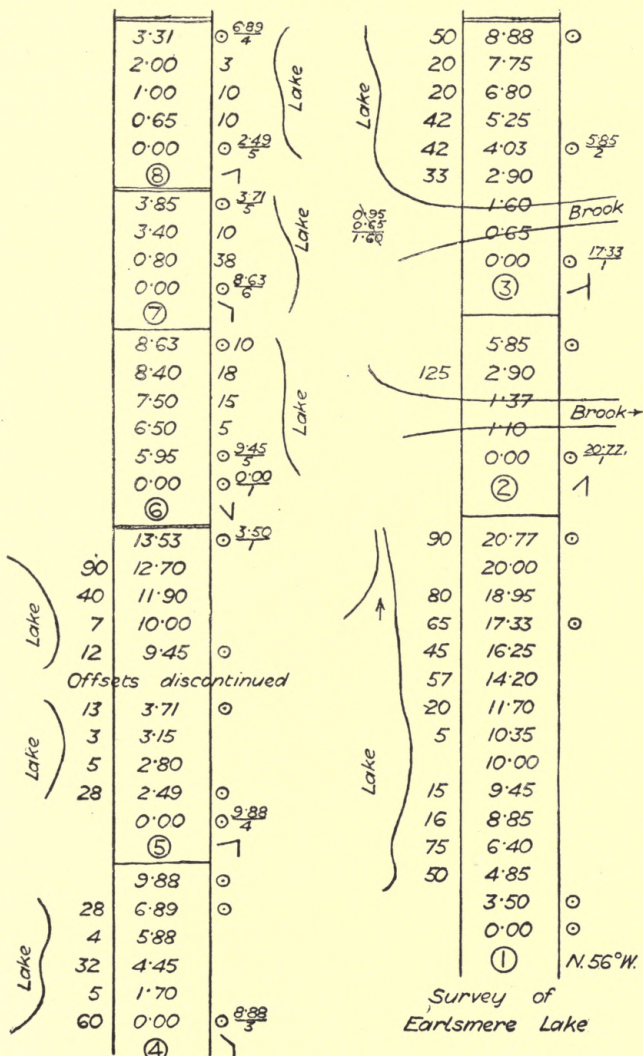 3·31 ⊙ 6·89/4
2·00 3
1·00 10
0·65 10
0·00 ⊙ 2·49/5
⑧
Lake
3·85 ⊙ 3·71/5
3·40 10
0·80 38
0·00 ⊙ 8·63/6
⑦
Lake
8·63 ⊙ 10
8·40 18
7·50 15
6·50 5
5·95 ⊙ 9·45/5
0·00 ⊙ 0·00/1
⑥
Lake
13·53 ⊙ 3·50/1
90 12·70
40 11·90
7 10·00
12 9·45 ⊙
Lake
Offsets discontinued
13 3·71 ⊙
3 3·15
5 2·80
28 2·49 ⊙
0·00 ⊙ 9·88/4
⑤
Lake
9·88 ⊙
28 6·89 ⊙
4 5·88
32 4·45
5 1·70
60 0·00 ⊙ 8·88/3
④
Lake
50 8·88 ⊙
20 7·75
20 6·80
42 5·25
42 4·03 ⊙ 5·85/2
33 2·90
1·60
0·65
0·00 ⊙ 17·33/1
③
Lake
Brook
0·95
0·65
1·60
5·85 ⊙
125 2·90
1·37
1·10
0·00 ⊙ 20·77/1
②
Brook→
90 20·77 ⊙
20·00
80 18·95
65 17·33 ⊙
45 16·25
57 14·20
20 11·70
5 10·35
10·00
15 9·45
16 8·85
75 6·40
50 4·85
3·50 ⊙
0·00 ⊙
① N.56°W.
Lake
Survey of
Earlsmere Lake